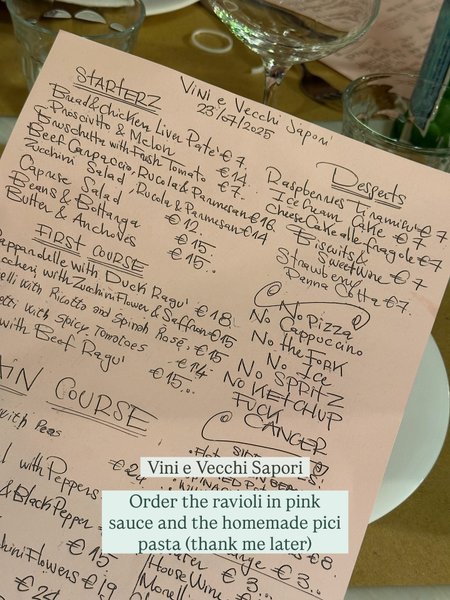 Vini e Vecchi Sapori
23/07/2025
STARTERZ
Bread & Chicken Liver Pate' € 7
Prosciutto & Melon € 14
Bruschetta with Fresh Tomato € 7.
Beef Carpaccio, Rucola & Parmesan € 16
Zucchini Salad, Rucola & Parmesan € 14
Caprese Salad € 12
Beans & Bottarga € 15
Butter & Anchovies € 15..
FIRST COURSE
Pappardelle with Duck Ragu' € 18
with Zucchini Flower & Saffron € 15
with Ricotta and Spinach Rosé € 15
with Spicy Tomatoes € 14
with Beef Ragu' € 15...
MAIN COURSE
with Peas
with Peppers € 24
& Black Pepper
€ 15
Flowers € 19
€ 24
Desserts
Raspberries Tiramisu' € 7
Ice Cream Cake € 7
Cheese Cake alle fragole € 7
Biscuits & Sweet Wine € 7
Strawberry Panna Cotta € 7.
No Pizza
No Cappuccino
No the FORK
No Ice
No SPRITZ
No KETCHUP
FUCK
CANCER
€ 8
House Wine € 3...
€ 3...
Vini e Vecchi Sapori
Order the ravioli in pink
sauce and the homemade pici
pasta (thank me later)